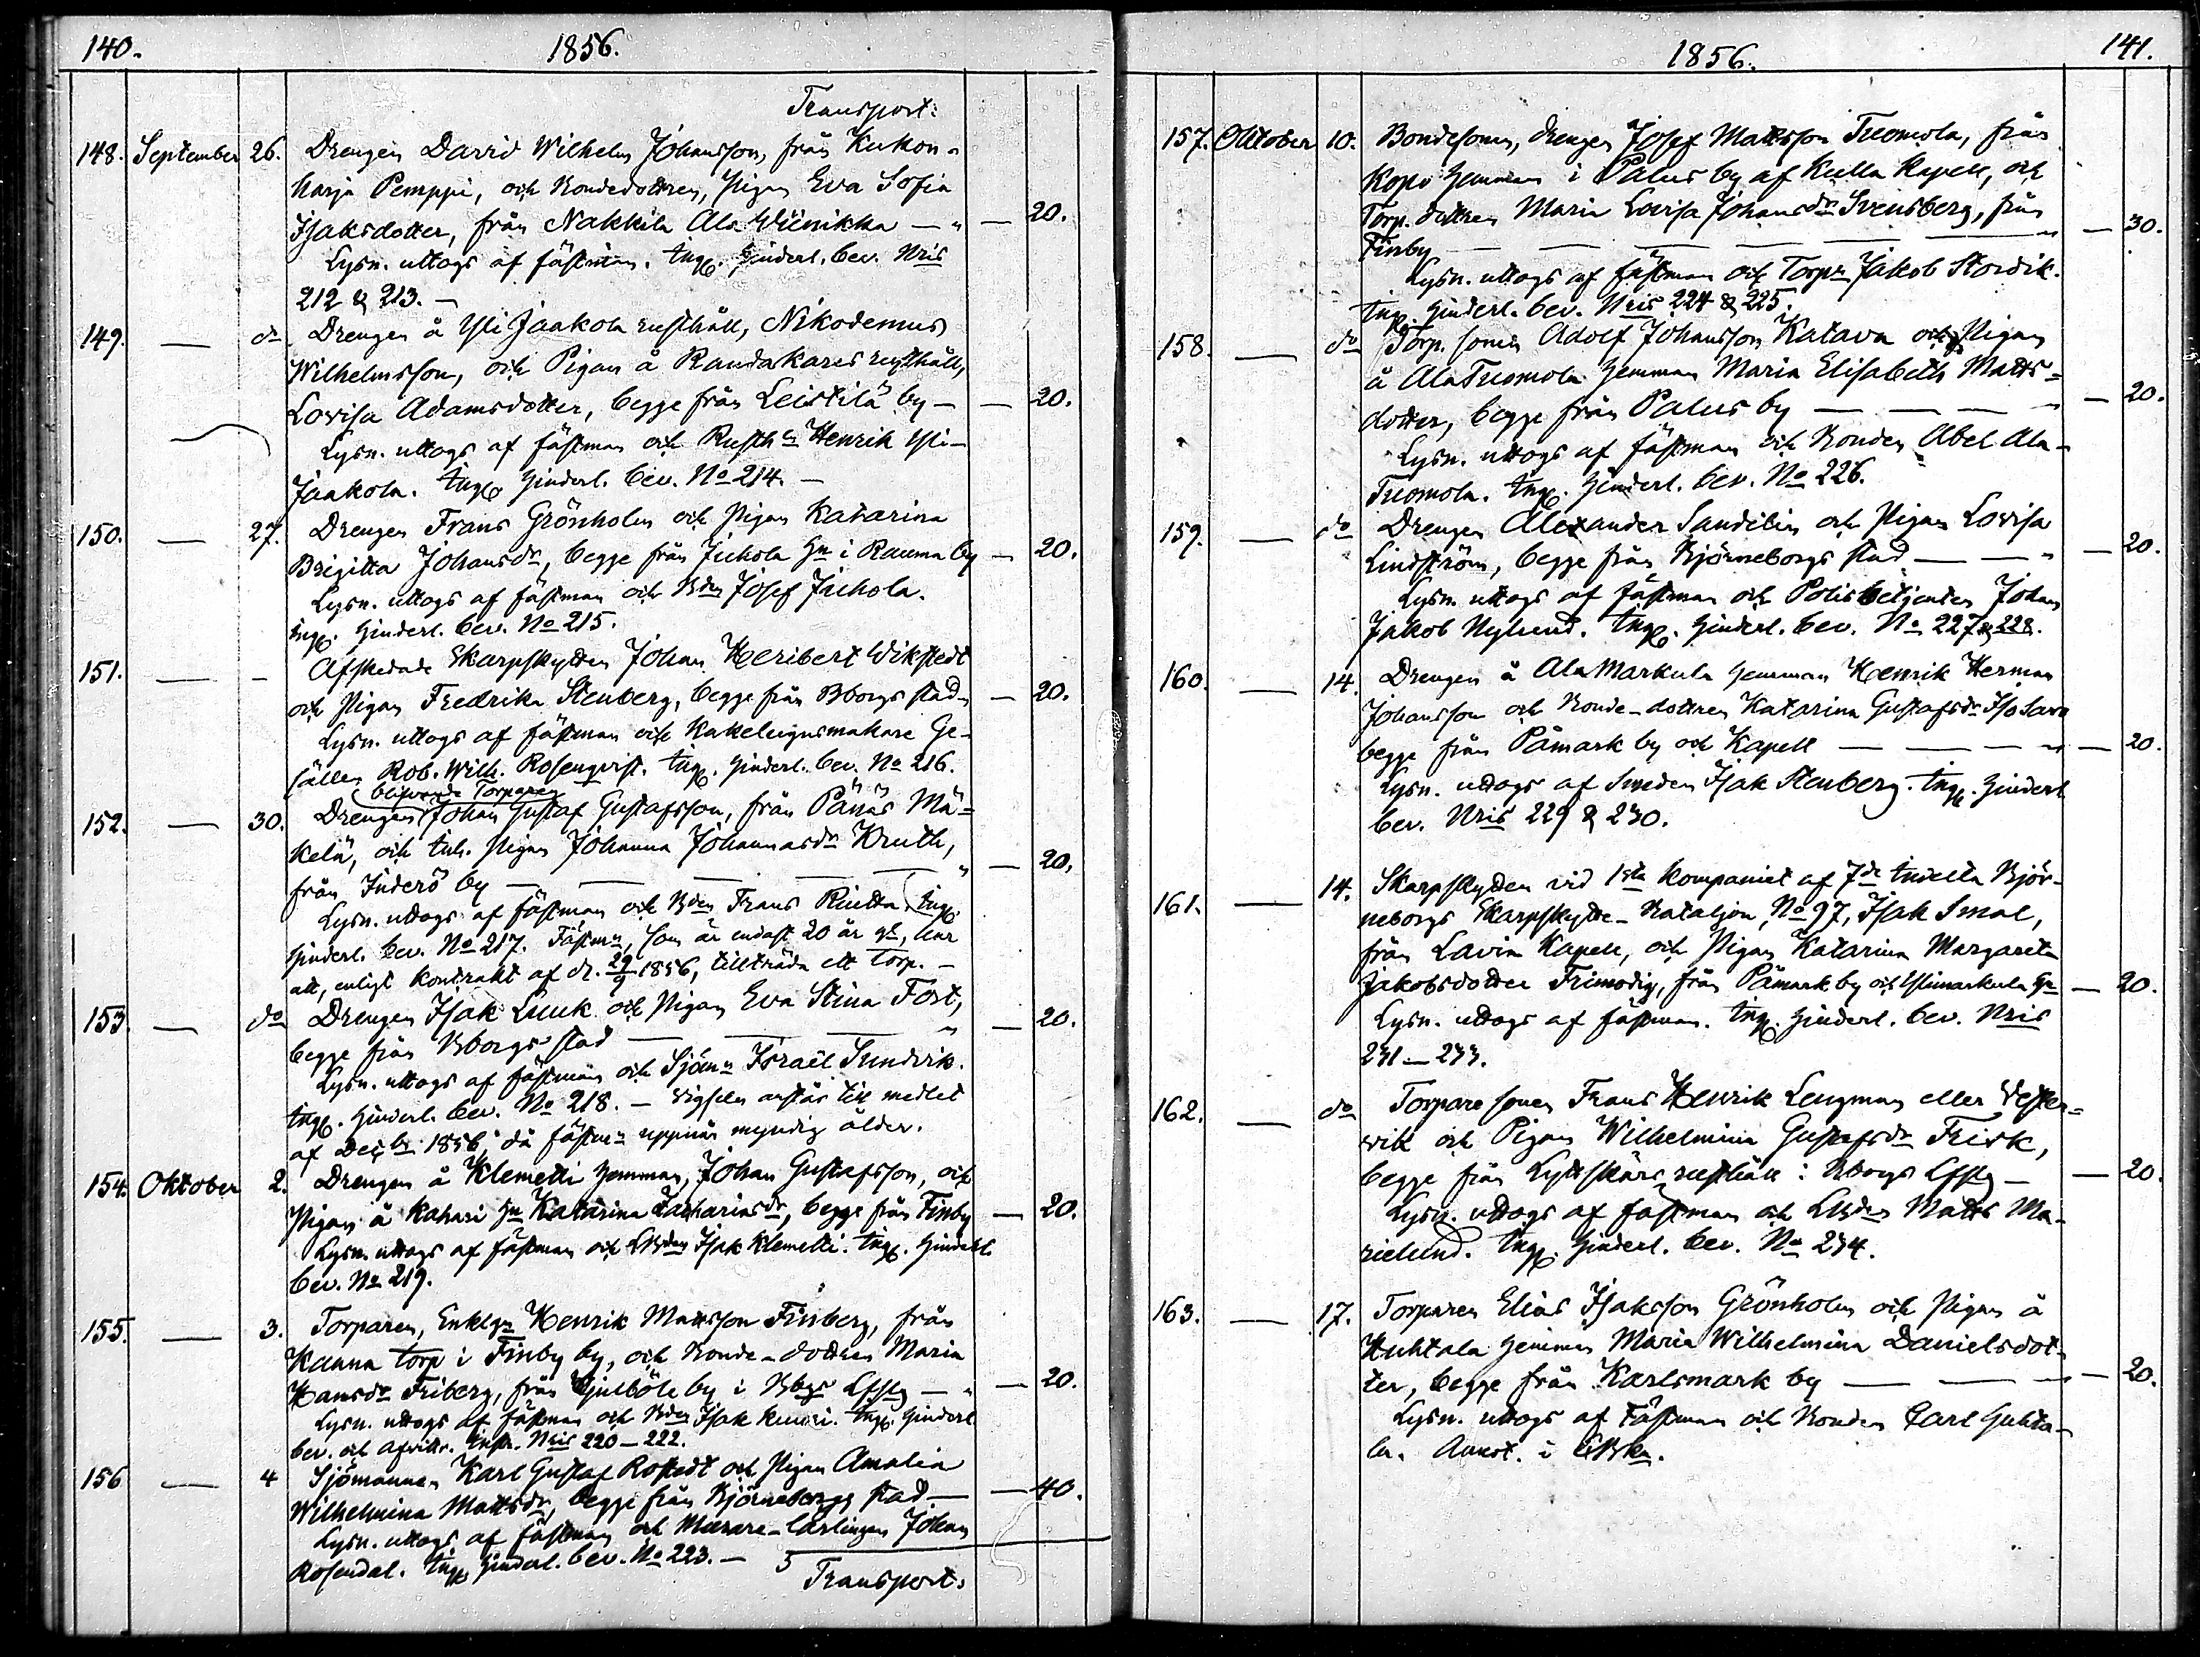 140.
1856.
Transport:
148. September 26. Drengen David Wilhelm Johansson, från Kukon-
harja Pemppi, och Bondedottren, Pigan Eva Sofia
Isaksdotter, från Nakkila Ala Wiinikka — " — 20.
Lysn. uttogs af fästman. Ingg. hinderl. bev. Nris
212 & 213. —
149. — do Drengen å Yli Jaakola rusthåll, Nikodemus
Wilhelmsson, och Pigan å Randakares rusthåll,
Lovisa Adamsdotter, begge från Leistilä by — — 20.
Lysn. uttogs af fästman och Rusth. Henrik Yli-
Jaakola. Ingg. hinderl. bev. No 214. —
150. — 27. Drengen Frans Grönholm och Pigan Katarina
Brigitta Johansdr, begge från Juhola Hn i Rauma by — 20.
Lysn. uttogs af fästman och Bden Josef Juhola.
Ingg. hinderl. bev. No 215.
151. — - Afskedade Skarpskytten Johan Heribert Wikstedt
och Pigan Fredrika Stenberg, begge från Bborgs stad — 20.
Lysn. uttogs af fästman och Kakelugnsmakare Ge-
sällen Rob. Wilh. Rosenqvist. Ingg. hinderl. bev. No 216.
blifvande Torparen
152. — 30. Drengen Johan Gustaf Gustafsson, från Pänäs Mä-
kelä, och Inh. Pigan Johanna Johannasdr Kruth,
från Inderö by — — — — " — 20.
Lysn. uttogs af fästman och Bden Frans Rintta. Ingg.
hinderl. bev. No 217. Fästmn, som är endast 20 år gl, har
att, enligt kontrakt af d. 29/9 1856, tillträda ett torp. —
153. — do Drengen Isak Luuk och Pigan Eva Stina Fost,
begge från Bborgs stad — — — " — 20.
Lysn. uttogs af fästman och Sjömn Israël Sundvik.
Ingg. hinderl. bev. No 218. — Vigseln anstår till medlet
af Decbr 1856, då fästmn uppnår myndig ålder.
154. Oktober 2. Drengen å Klemetti hemman, Johan Gustafsson, och
Pigan å Kahari Hn Katarina Zachariasdr, begge från Finby — 20.
Lysn. uttogs af fästman och LBden Isak Klemetti. Ingg. hinderl.
bev. No 219.
155. — 3. Torparen, Enklgn Henrik Mattsson Finberg, från
Kaana torp i Finby by, och Bonde-dottren Maria
Hansdr Friberg, från Hjulböle by i Bbgs Lfslg — " — 20.
Lysn. uttogs af fästman och Bden Isak Kuuri. Ingg. hinderl.
bev. och afvittr. Inst. Nris 220 — 222.
156 — 4 Sjömannen Karl Gustaf Rostedt och Pigan Amalia
Wilhelmina Mattsdr, begge från Björneborgs stad — — 40.
Lysn. uttogs af fästman och Murare-lärlingen Johan
Rosendal. Ingg. hinderl. bev. No 223. —
Transport.
1856.
141.
157. Oktober 10. Bondesonen, drengen Josef Mattsson Tuomola, från
Kopo hemman i Palus by af Kulla Kapell, och
Torp. dottren Maria Lovisa Johansdr Svensberg, från
Finby — — — — — " — 30.
Lysn. uttogs af fästman och Torpn Jakob Stordik.
Ingg. hinderl. bev. Nris 224 & 225.
158. — do Torp. sonen Adolf Johansson Katava och Pigan
å Ala Tuomola hemman Maria Elisabeth Matts-
dotter, begge från Palus by — — — " — 20.
Lysn. uttogs af fästman och Bonden Abel Ala-
Tuomola. Ingg. hinderl. bev. No 226.
159. — do Drengen Alexander Sandelin och Pigan Lovisa
Lindström, begge från Björneborgs stad — — " — 20.
Lysn. uttogs af fästman och Polisbetjenten Johan
Jakob Nylund. Ingg. hinderl. bev. No 227 & 228.
160. — 14. Drengen å Ala Markula hemman Henrik Herman
Johansson och Bonde-dottren Katarina Gustafsdr Iso Savo
begge från Påmark by och Kapell — — — " — 20.
Lysn. uttogs af Smeden Isak Stenberg. Ingg. hinderl.
bev. Nris 229 & 230.
161. — 14. Skarpskytten vid 1sta kompaniet af 7de Indelta Björ-
neborgs Skarpskytte-Bataljon, No 97, Isak Smal,
från Lavia Kapell, och Pigan Katarina Margareta
Jakobsdotter Frimodig, från Påmark by och Ylimarkula Hn — 20.
Lysn. uttogs af fästman. Ingg. hinderl. bev. Nris
231 — 233.
162. — do Torpare sonen Frans Henrik Lengman eller Vester-
vik och Pigan Wilhelmina Gustafsdr Frisk,
begge från Lyttskärs rusthåll i Bborgs Lfslg — — 20.
Lysn. uttogs af fästman och LBden Matts Ma-
rielund. Ingg. hinderl. bev. No 234.
163. — 17. Torparen Elias Isaksson Grönholm och Pigan å
Huhtala hemman Maria Wilhelmina Danielsdot-
ter, begge från Karlsmark by — — — — 20.
Lysn. uttogs af Fästman och Bonden Carl Huhta-
la. Annot. i